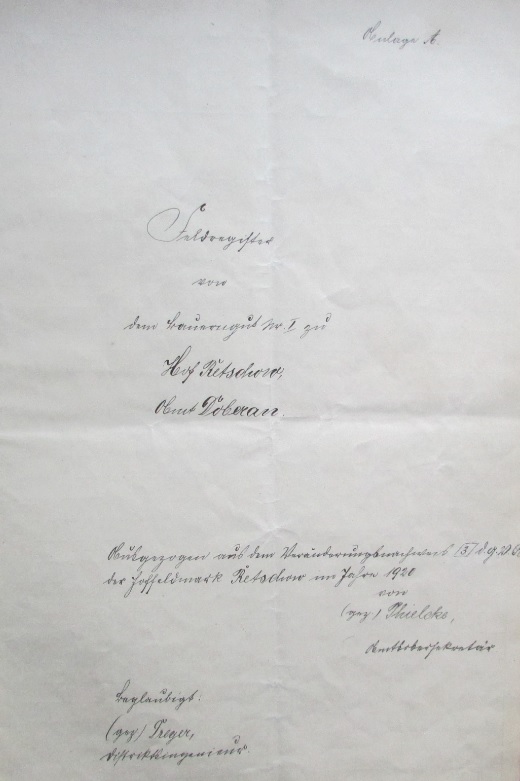 Anlage A.
Feldregister
von
dem Bauerngut Nr. I zu
Hof Retschow,
Amt Doberan.
Ausgezogen aus dem Veränderungsnachweis
der Hoffeldmark Retschow im Jahre 1920
von
(gez) Thielcke,
Amtsobersekretär
Beglaubigt:
(gez) Treger,
Distriktsingenieur.